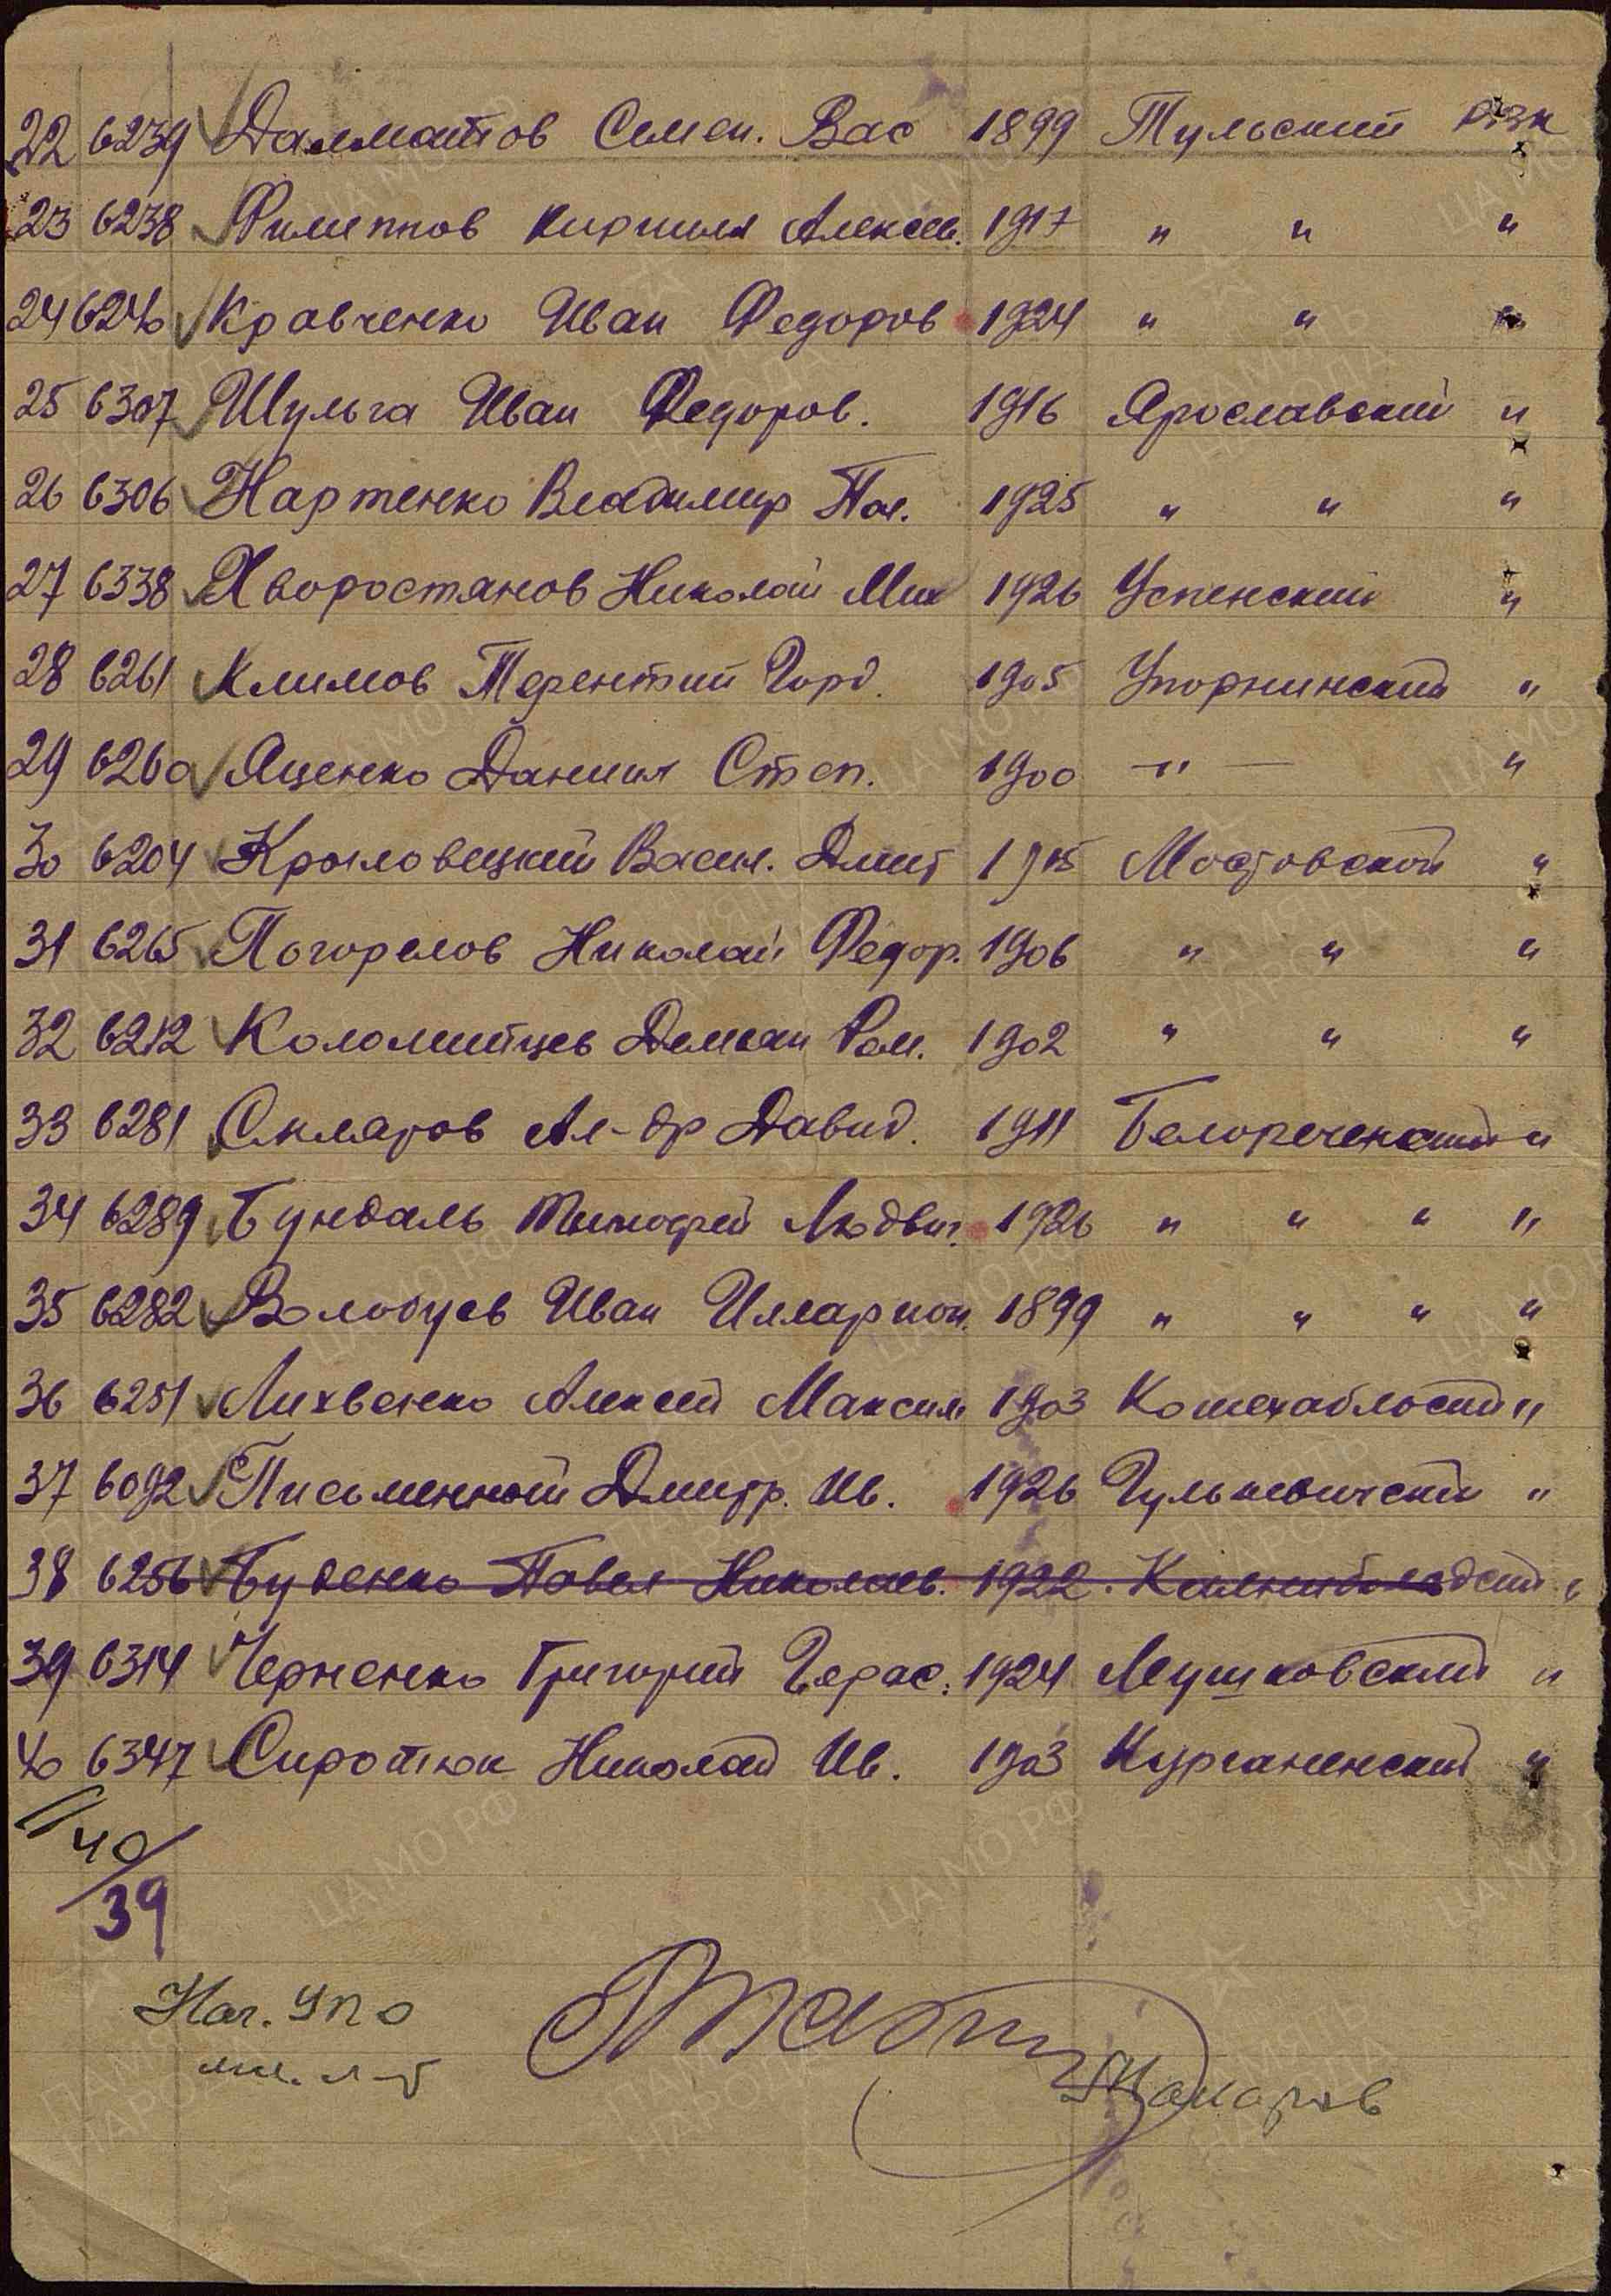 22 6239 Далматов Семен. Вас 1899 Тульский РВК
23 6238 Филиппов Кирилл Алексеев. 1917 " " "
24 6240 Кравченко Иван Федоров 1924 " " "
25 6307 Шульга Иван Федоров. 1916 Ярославский "
26 6306 Нартенко Владимир Пав. 1925 " " "
27 6338 Хворостянов Николай Мих 1926 Успенский "
28 6261 Климов Терентий Горд. 1905 Упорнинский "
29 6260 Яценко Даниил Степ. 1900 — " — "
30 6204 Крыловецкий Васил. Дмит 1915 Мостовской "
31 6265 Погорелов Николай Федор. 1906 " " "
32 6212 Коломийцев Демьян Ром. 1902 " " "
33 6281 Скляров Ал-др Давид. 1911 Белореченский "
34 6289 Бундаль Тимофей Людвиг. 1926 " " " "
35 6282 Володуев Иван Илларион. 1899 " " " "
36 6251 Лихвенко Алексей Максим 1903 Кошехабльский "
37 6092 Письменный Дмитр. Ив. 1926 Гулькевичский "
38 6256 Буденко Павел Николаев. 1922.
39 6314 Черненко Григорий Герас. 1924 Мушковский "
40 6347 Сиротюк Николай Ив. 1903 Курганенский "
40/
39
Нач. УПО
мл. л-т Макаров